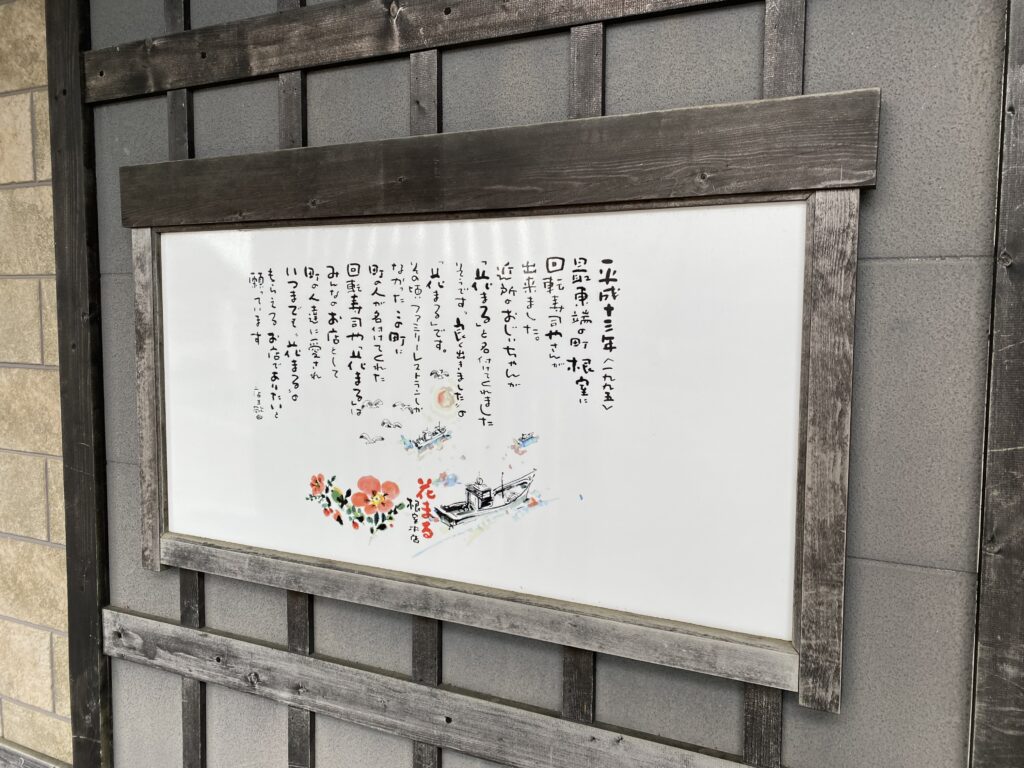 平成十三年〈一九九五〉
最東端の町 根室に
回転寿司やさんが
出来ました。
近所のおじいちゃんが
「花まる」と名付けてくれました
そうです。"良く出きました"の
「花まる」です。
その頃、ファミリーレストランしか
なかったこの町に
町の人が名付けてくれた
回転寿司や"花まる"は
みんなのお店として
町の人達に愛され
いつまでも"花まる"を
もらえる お店でありたいと
願っています
花まる
根室本店